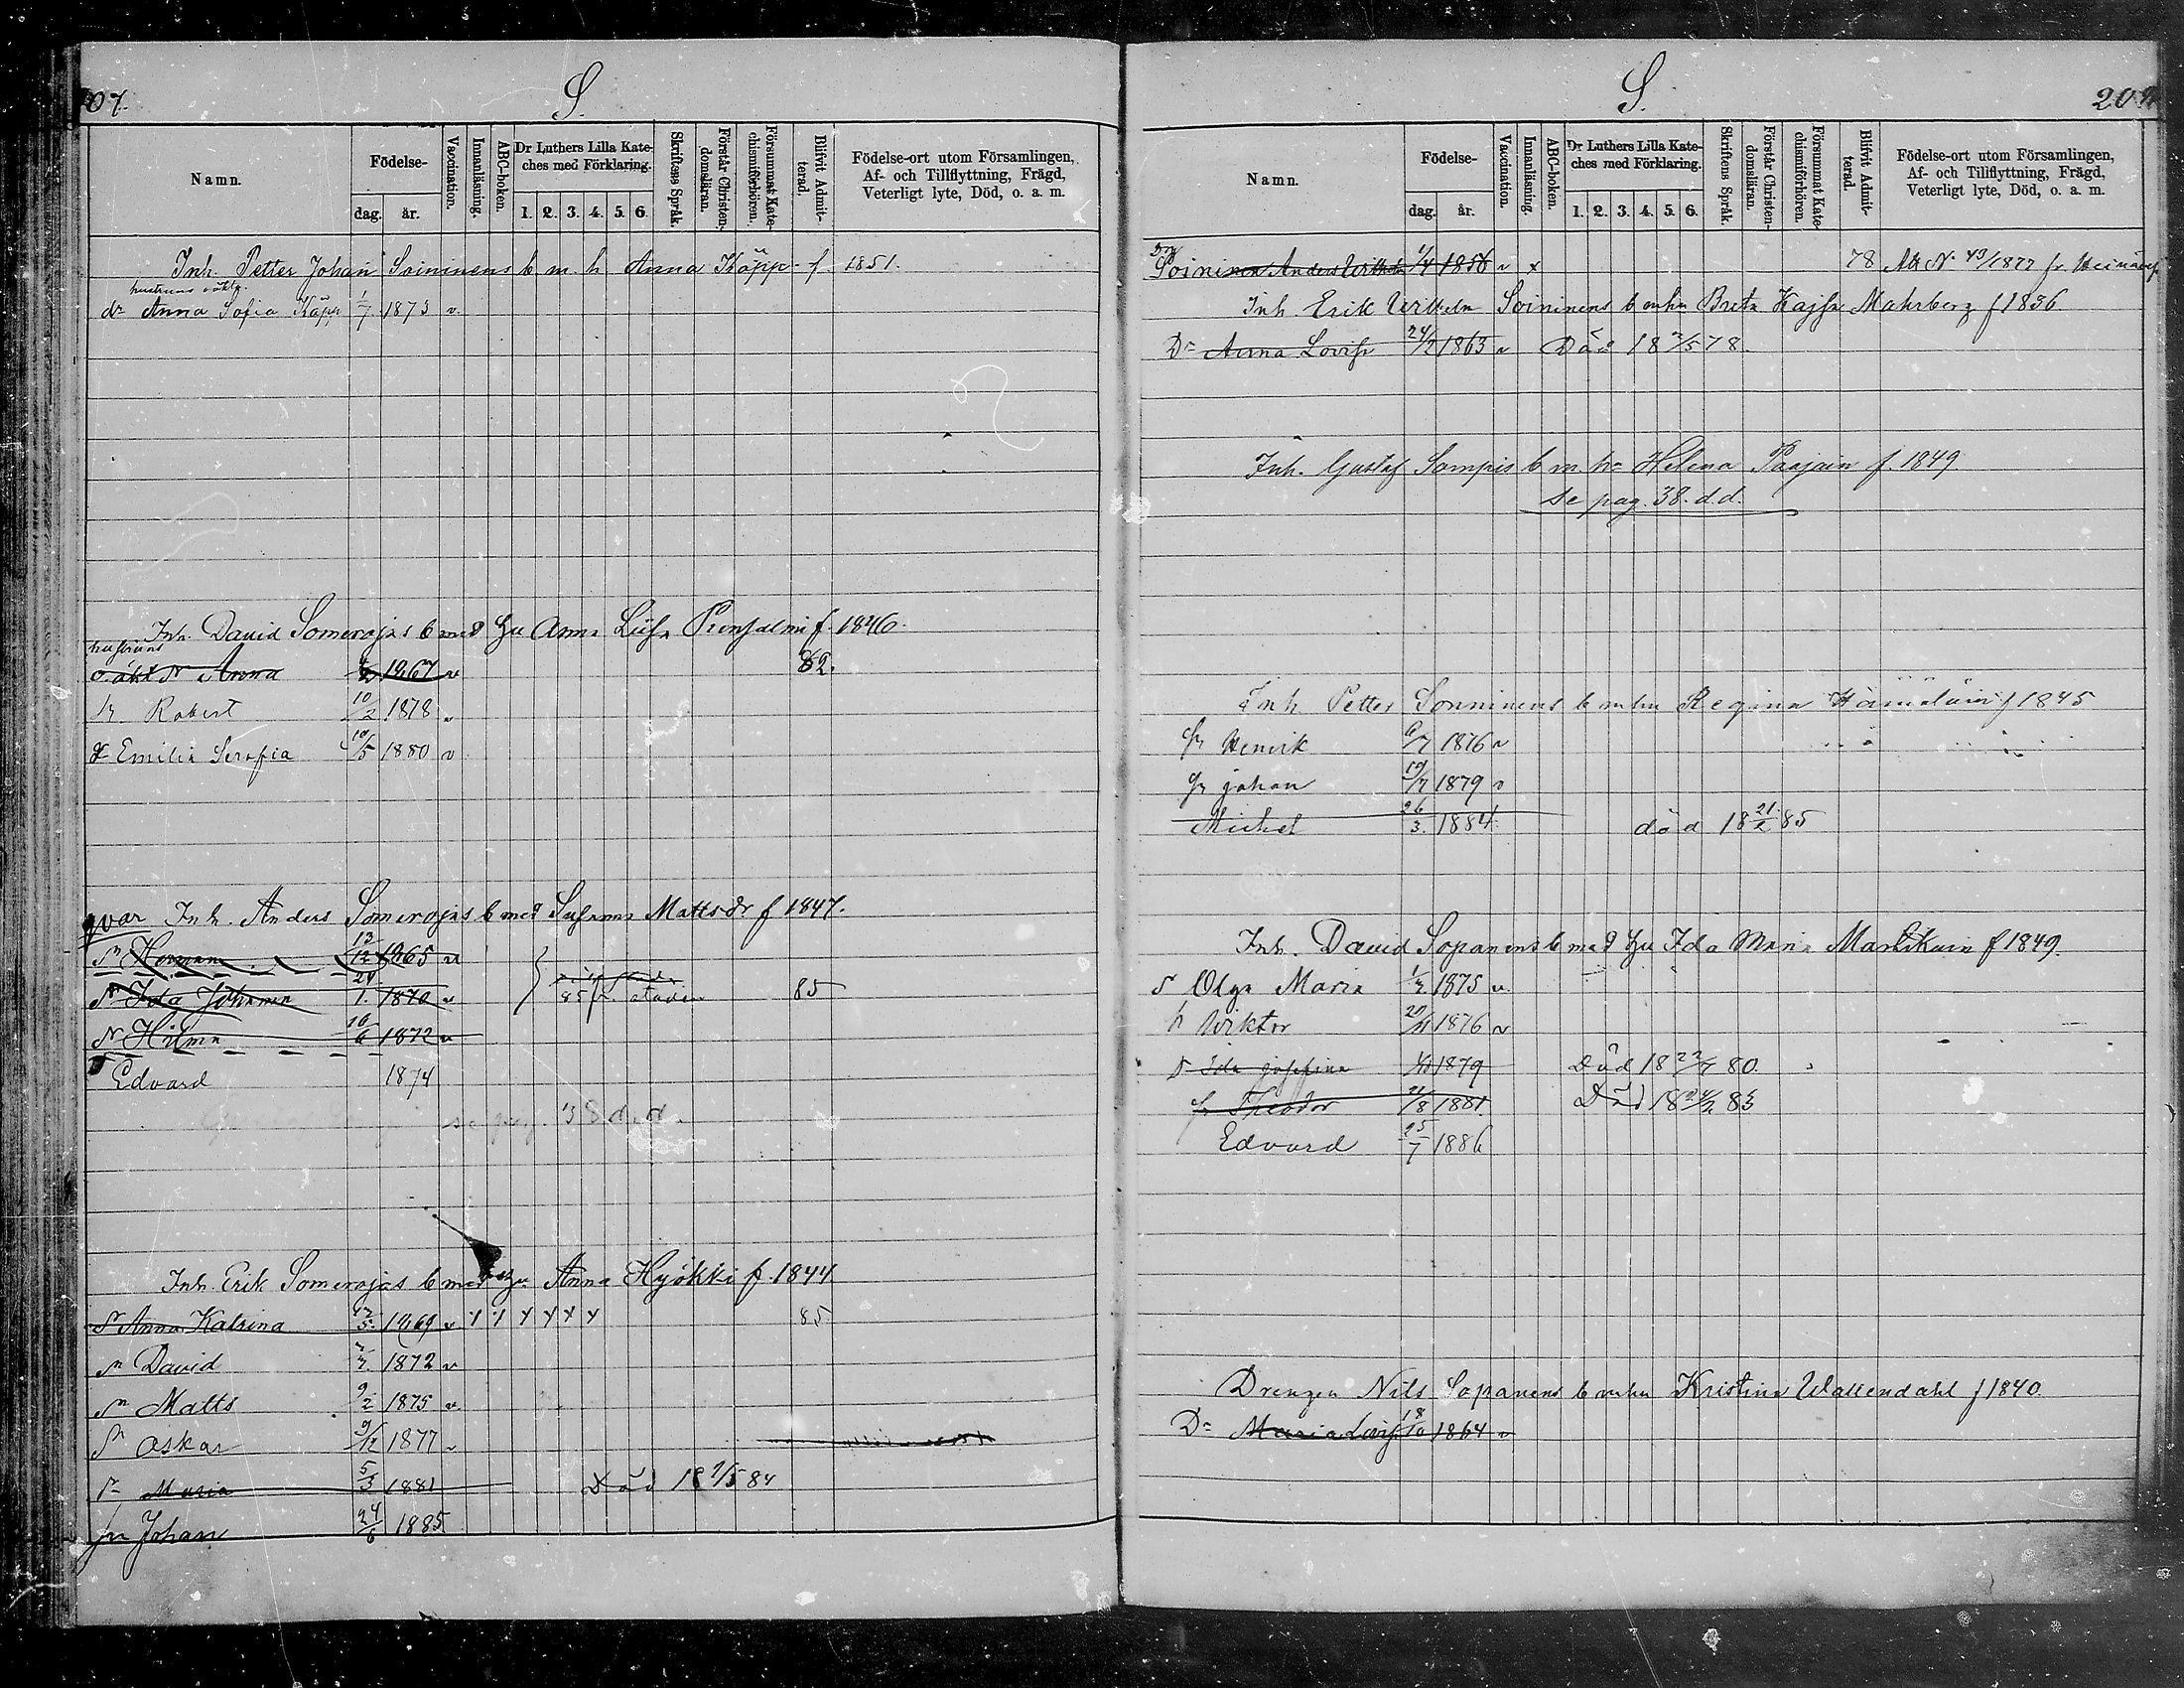 07.
S.
Namn.
Födelse-
dag.
år.
Vaccination.
Innanläsning.
ABC-boken.
Dr Luthers Lilla Kate-
ches med Förklaring.
1. 2. 3. 4. 5. 6.
Skriftens Språk.
Förstår Christen-
domsläran.
Försummat Kate-
chismiförhören.
Blifvit Admit-
terad.
Födelse-ort utom Församlingen,
Af- och Tillflyttning, Frägd,
Veterligt lyte, Död, o. a. m.
Inh. Petter Johan Soininens b m. h Anna Käpp f. 1851.
hustruns oäkta
dr Anna Sofia Käpp 1/7 1873 v.
Inh. David Somerojas b med hu Anna Liisa f. 1846.
hustruns
oäkt Anna 1867 v 82.
Robert 10/2 1878 v
Emilia Serafia 10/5 1880 v
qvar Inh. Anders Somerojas b med Susanna Mattsdr f 1847.
Herman 13/12 1865 v
Ida Johanna 24/1. 1870 v 85
Hilma 16/6 1872 v
Edvard 1874
se pag. 38 d.d.
Inh. Erik Somerojas b med hu Anna Hyökki f. 1844
Anna Katrina 12/5 1869 v 85
David 1872 v
Matts 9/2 1875 v.
Oskar 9/12 1877 v
Maria 5/3 1881 Död 18 7/5 84
Johan 24/6 1885
S.
Namn.
Födelse-
dag.
år.
Vaccination.
Innanläsning.
ABC-boken.
Dr Luthers Lilla Kate-
ches med Förklaring.
1. 2. 3. 4. 5. 6.
Skriftens Språk.
Förstår Christen-
domsläran.
Försummat Kate-
chismiförhören.
Blifvit Admit-
terad.
Födelse-ort utom Församlingen,
Af- och Tillflyttning, Frägd,
Veterligt lyte, Död, o. a. m.
Soininen Anders Wilhelm 1/4 1856 v x 78 Att. N. 43/1877 fr.
Inh. Erik Wilhelm Soininens b m hu Breta Kajsa Mahrberg f 1836.
Dr Anna Lovisa 24/2 1863 v Död 18 2/5 78.
Inh. Gustaf Sompis b m. hu Helena Paajain f. 1849
se pag. 38. d.d.
Inh Petter Sonninens b m hu Regina Hämäläin f 1845
Henrik 6/7 1876 v
johan 19/7 1879 v
Michel 26/3. 1884. död 18 21/2 85
Inh. David Sopanens b med hu Ida Maria Martikain f 1849.
Olga Maria 1875 v
Wiktor 20/11 1876 v
Ida josefina 1879 Död 18 22/7 80.
Theodor 21/8 1881. Död 18 24/2 83
Edvard 25/7 1886
Drengen Nils Sopanens b m hu Kristina Wallendahl f 1840.
Dr Maria Lovisa 18/10 1864 v